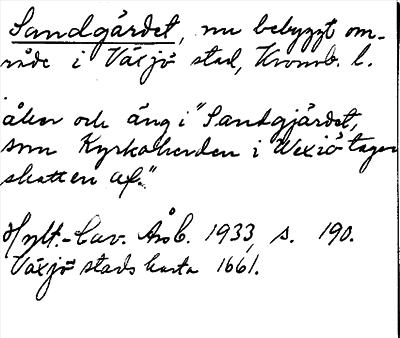 Sandgärdet, nu bebyggt om-
råde i Växjö stad, Kronob. l.
åker och äng i "Sandgjärdet,
som Kyrkoherden i Wexiö tager
skatten af."
Hylt.-Cav. Årsb. 1933, s. 190.
Växjö stads karta 1661.